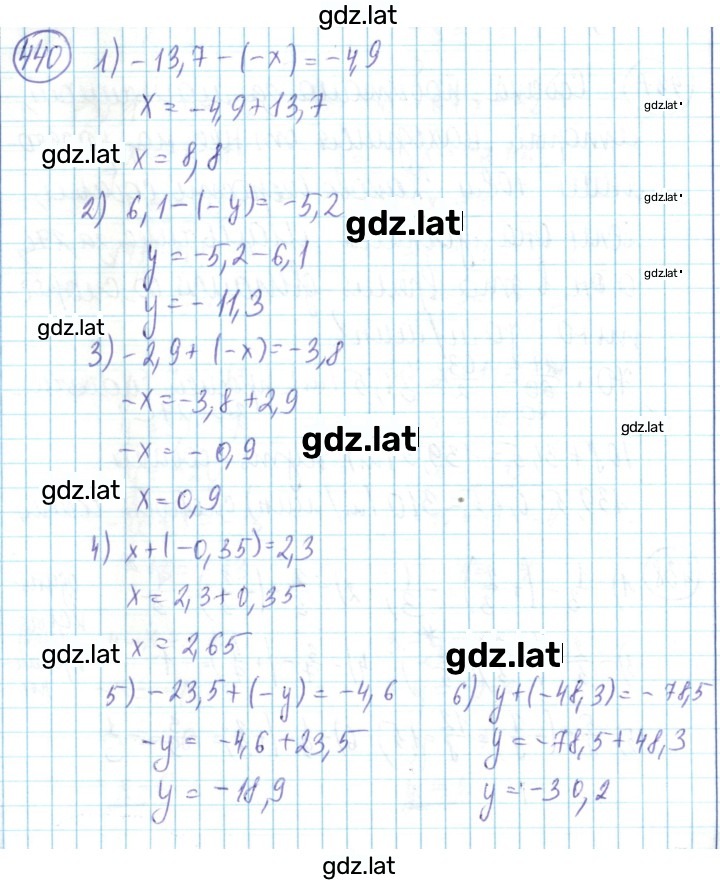 gdz.lat
440 1) -13,7 - (-x) = -4,9
x = -4,9 + 13,7
gdz.lat
gdz.lat x = 8,8
2) 6,1 - (-y) = -5,2
gdz.lat
gdz.lat
y = -5,2 - 6,1
gdz.lat
y = - 11,3
gdz.lat
3) -2,9 + (-x) = -3,8
-x = -3,8 + 2,9
gdz.lat
gdz.lat
-x = - 0,9
gdz.lat x = 0,9
4) x + (-0,35) = 2,3
x = 2,3 + 0,35
gdz.lat x = 2,65
gdz.lat
5) -23,5 + (-y) = -4,6 6) y + (-48,3) = -78,5
-y = -4,6 + 23,5 y = -78,5 + 48,3
y = -18,9 y = -30,2
gdz.lat